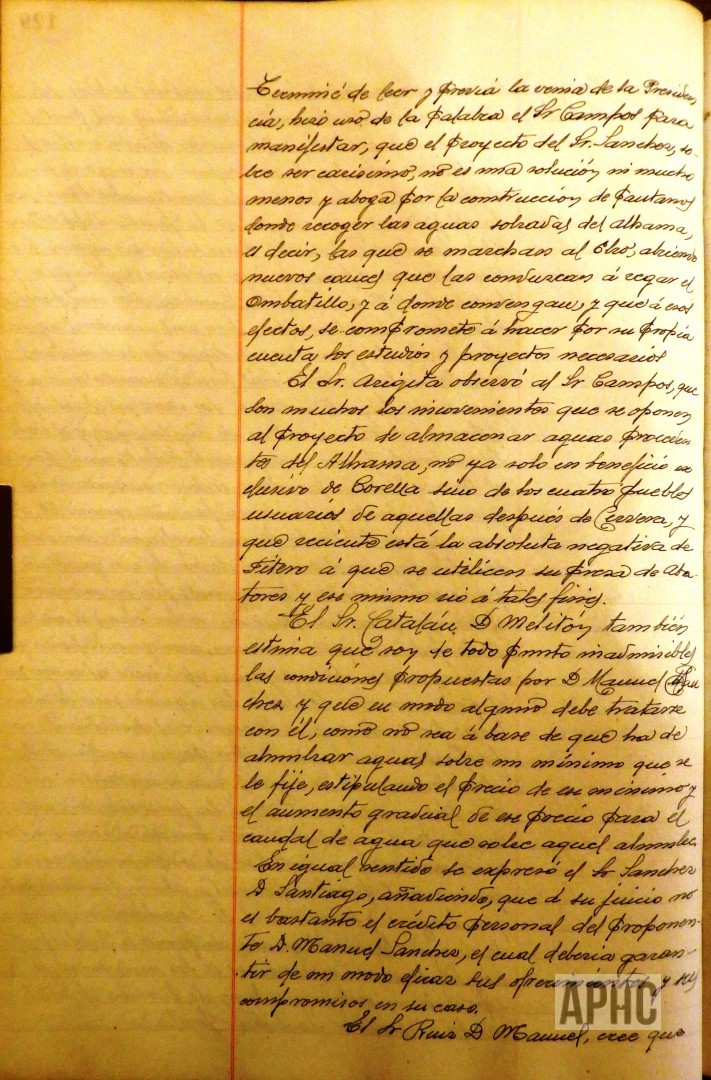 Terminó de leer y previa la venia de la Presiden
cia, hizo uso de la palabra el Sr Campos para
manifestar, que el proyecto del Sr. Sanchez, so-
bre ser carísimo, no es una solución ni mucho
menos y aboga por la construccion de pantanos
donde recoger las aguas sobradas del Alhama,
es decir, las que se marchan al Ebro, abriendo
nuevos cauces que las conduzcan á regar el
Ombatillo, y á donde convengan, y que á esos
efectos, se compromete á hacer por su propia
cuenta los estudios y proyectos necesarios
El Sr. Arigita observó al Sr Campos, que
son muchos los inconvenientes que se oponen
al proyecto de almacenar aguas proceden
tes del Alhama, no ya solo en beneficio ex
clusivo de Corella sino de los cuatro pueblos
usuarios de aquellas después de Cervera, y
que reciente está la absoluta negativa de
Fitero á que se utilicen su presa de Aba-
tores y ese mismo rio á tales fines.
El Sr. Catalán D Melitón también
estima que son de todo punto inadmisibles
las condiciónes propuestas por D Manuel San
chez y que en modo alguno debe tratarse
con él, como no sea á base de que ha de
alumbrar aguas sobre un mínimo que se
le fije, estipulando el precio de ese minimo y
el aumento gradual de ese precio para el
caudal de agua que sobre aquel alumbre.
En igual sentido se expresó el Sr Sanchez
D Santiago, añadiendo, que á su juicio no
es bastante el crédito personal del proponen-
te D. Manuel Sanchez, el cual debería garan-
tir de un modo eficaz sus ofrecimientos y sus
compromisos en su caso.
El Sr Ruiz D Manuel, cree que
APHC
129